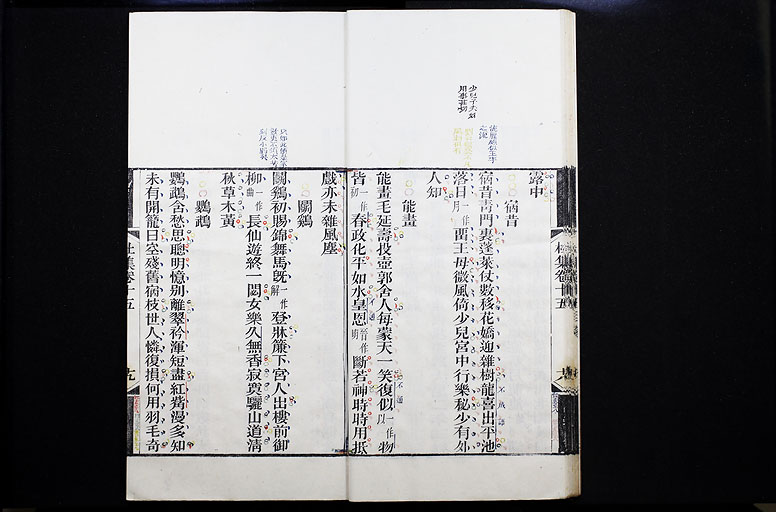 露中
宿昔
宿昔青門裏蓬萊仗數移花嬌迎雜樹龍喜出平池
落日一作月留王母微風倚少兒宮中行樂秘少有外
人知
能畫
能畫毛延壽投壺郭舍人每蒙天一笑復似一作以物
皆一作初春政化平如水皇恩一作明斷若神時時用抵
戲亦未雜風塵
鬭鷄
鬭鷄初賜錦舞馬旣一作解登牀簾下宮人出樓前御
柳一作曲長仙遊終一閟女樂久無香寂寞驪山道淸
秋草木黃
鸚鵡
鸚鵡含愁思聰明憶别離翠衿渾短盡紅觜漫多知
未有開籠日空殘舊宿枝世人憐復損何用羽毛奇
杜集卷十五